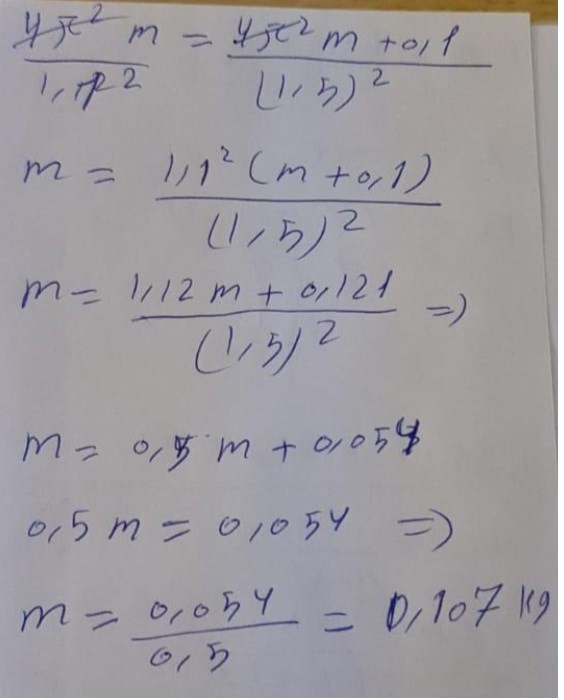 4π² m / 1,1² = 4π² m + 0,1 / (1,5)²
m = 1,1² (m + 0,1) / (1,5)²
m = 1,12 m + 0,121 / (1,5)² =>
m = 0,5 m + 0,054
0,5 m = 0,054 =>
m = 0,054 / 0,5 = 0,107 kg